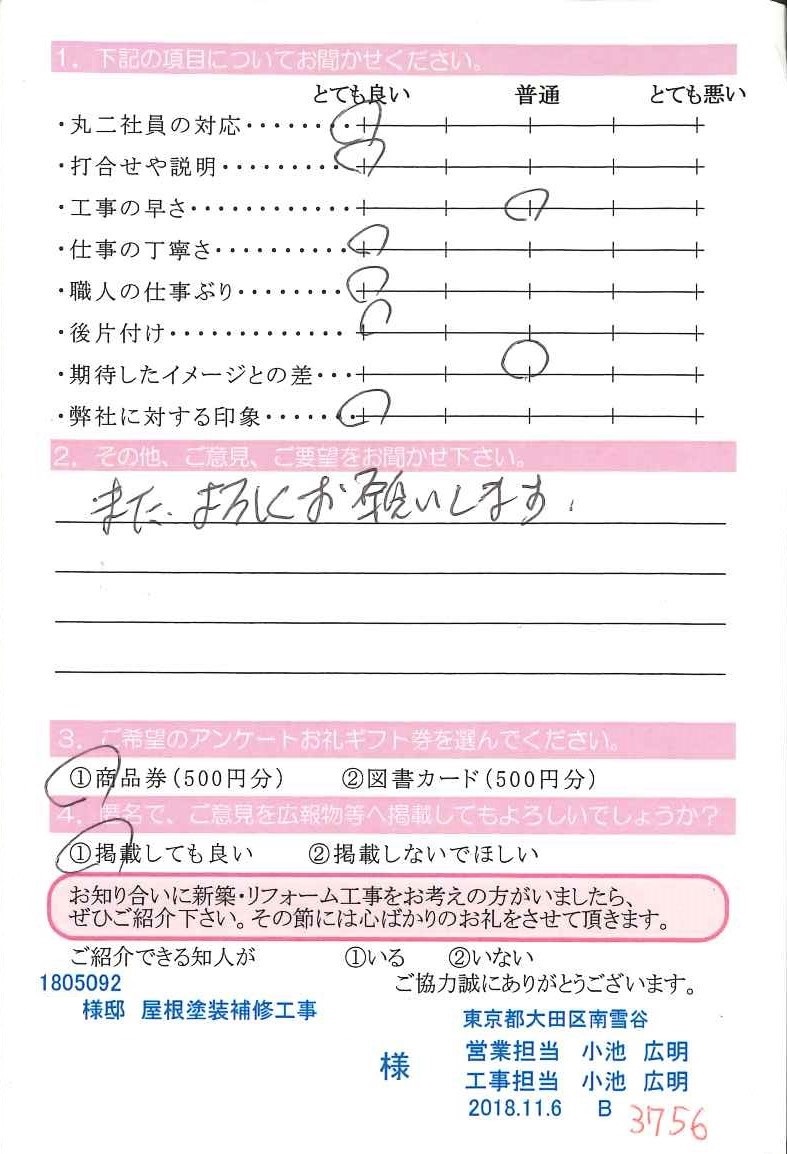 1. 下記の項目についてお聞かせください。
とても良い 普通 とても悪い
・丸二社員の対応・・・・・・・・
・打合せや説明・・・・・・・・・
・工事の早さ・・・・・・・・・・・・
・仕事の丁寧さ・・・・・・・・・・
・職人の仕事ぶり・・・・・・・・
・後片付け・・・・・・・・・・・・・
・期待したイメージとの差・・・
・弊社に対する印象・・・・・・・
2. その他、ご意見、ご要望をお聞かせ下さい。
また、よろしくお願いします。
3. ご希望のアンケートお礼ギフト券を選んでください。
①商品券(500円分) ②図書カード(500円分)
4. 匿名で、ご意見を広報物等へ掲載してもよろしいでしょうか？
①掲載しても良い ②掲載しないでほしい
お知り合いに新築・リフォーム工事をお考えの方がいましたら、
ぜひご紹介下さい。その節には心ばかりのお礼をさせて頂きます。
ご紹介できる知人が ①いる ②いない
1805092 ご協力誠にありがとうございます。
様邸 屋根塗装補修工事
東京都大田区南雪谷
様 営業担当 小池 広明
工事担当 小池 広明
2018.11.6 B 3756